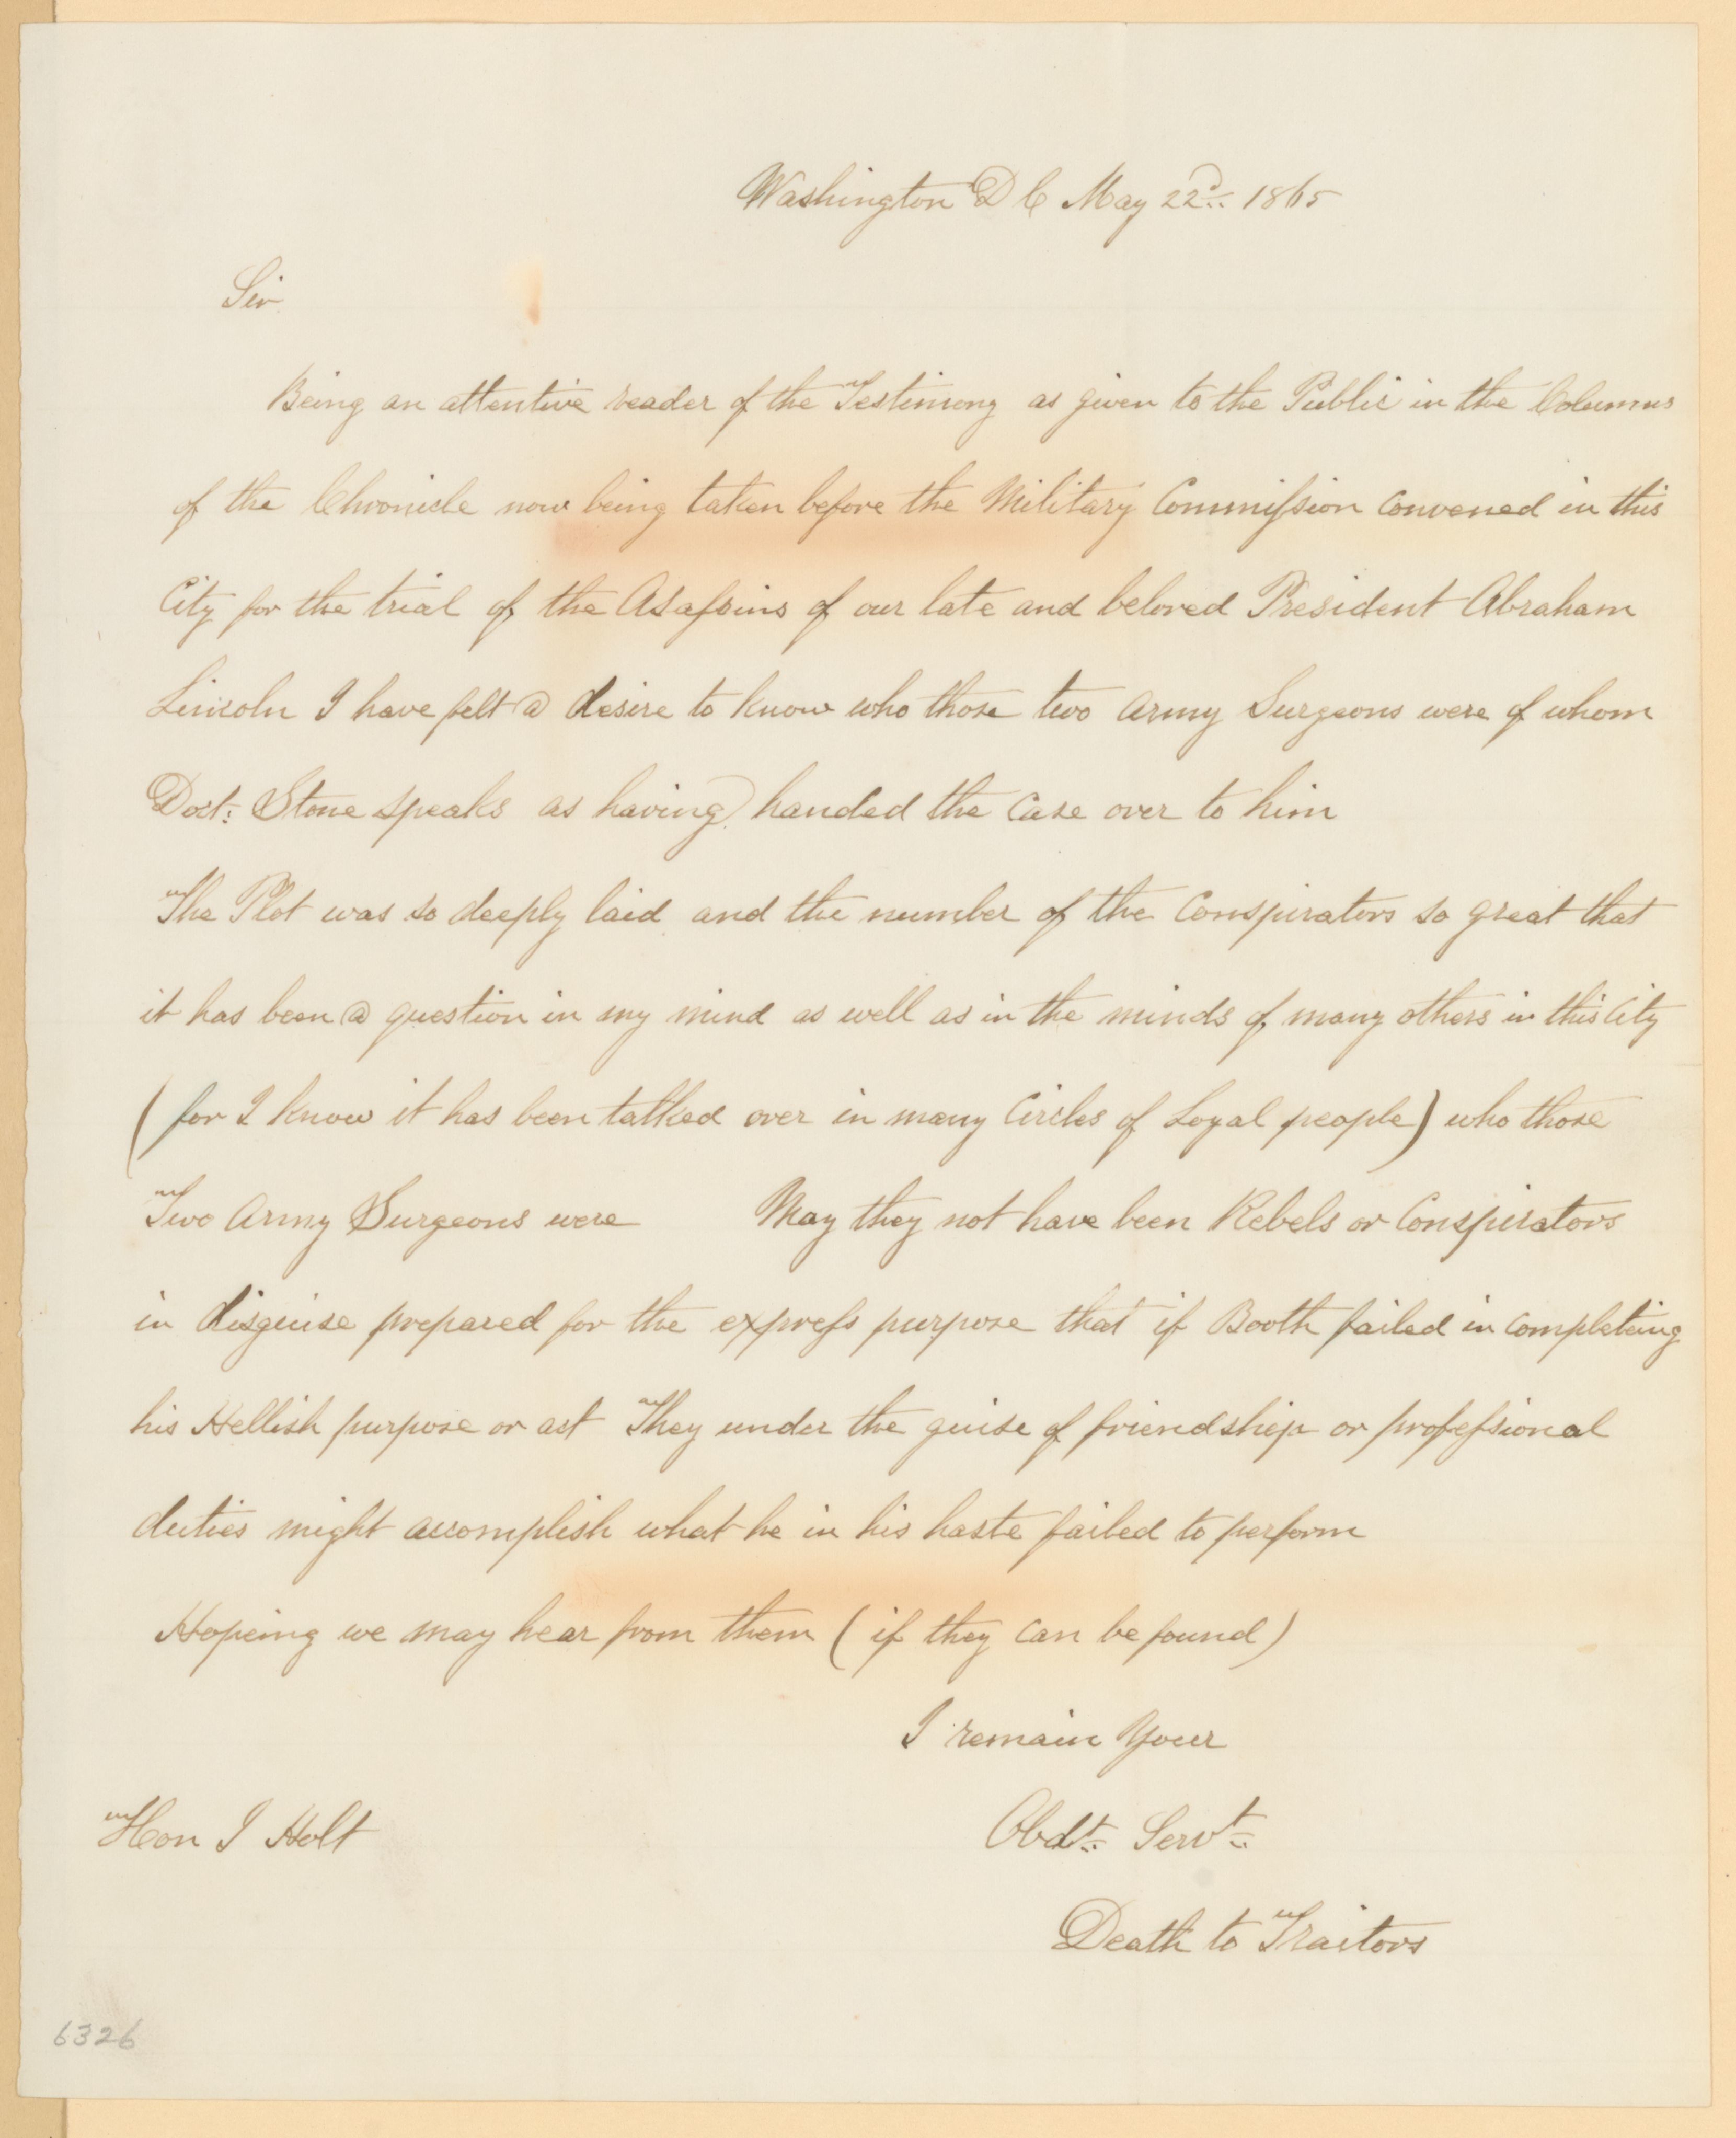 Washington D C May 22d 1865
Sir
Being an attentive reader of the Testimony as given to the Public in the Columns
of the Chronicle now being taken before the Military Commission Convened in this
City for the trial of the Asassins of our late and beloved President Abraham
Lincoln I have felt a desire to know who those two Army Surgeons were of whom
Doct: Stone speaks as having handed the Case over to him
The Plot was so deeply laid and the number of the Conspirators so great that
it has been a question in my mind as well as in the minds of many others in this City
(for I know it has been talked over in many Circles of Loyal people) who those
Two Army Surgeons were May they not have been Rebels or Conspirators
in disguise prepared for the express purpose that if Booth failed in completeing
his Hellish purpose or act They under the guise of friendship or professional
duties might accomplish what he in his haste failed to perform
Hopeing we may hear from them (if they can be found)
I remain Your
Hon J Holt
Obdt. Servt.
Death to Traitors
6326